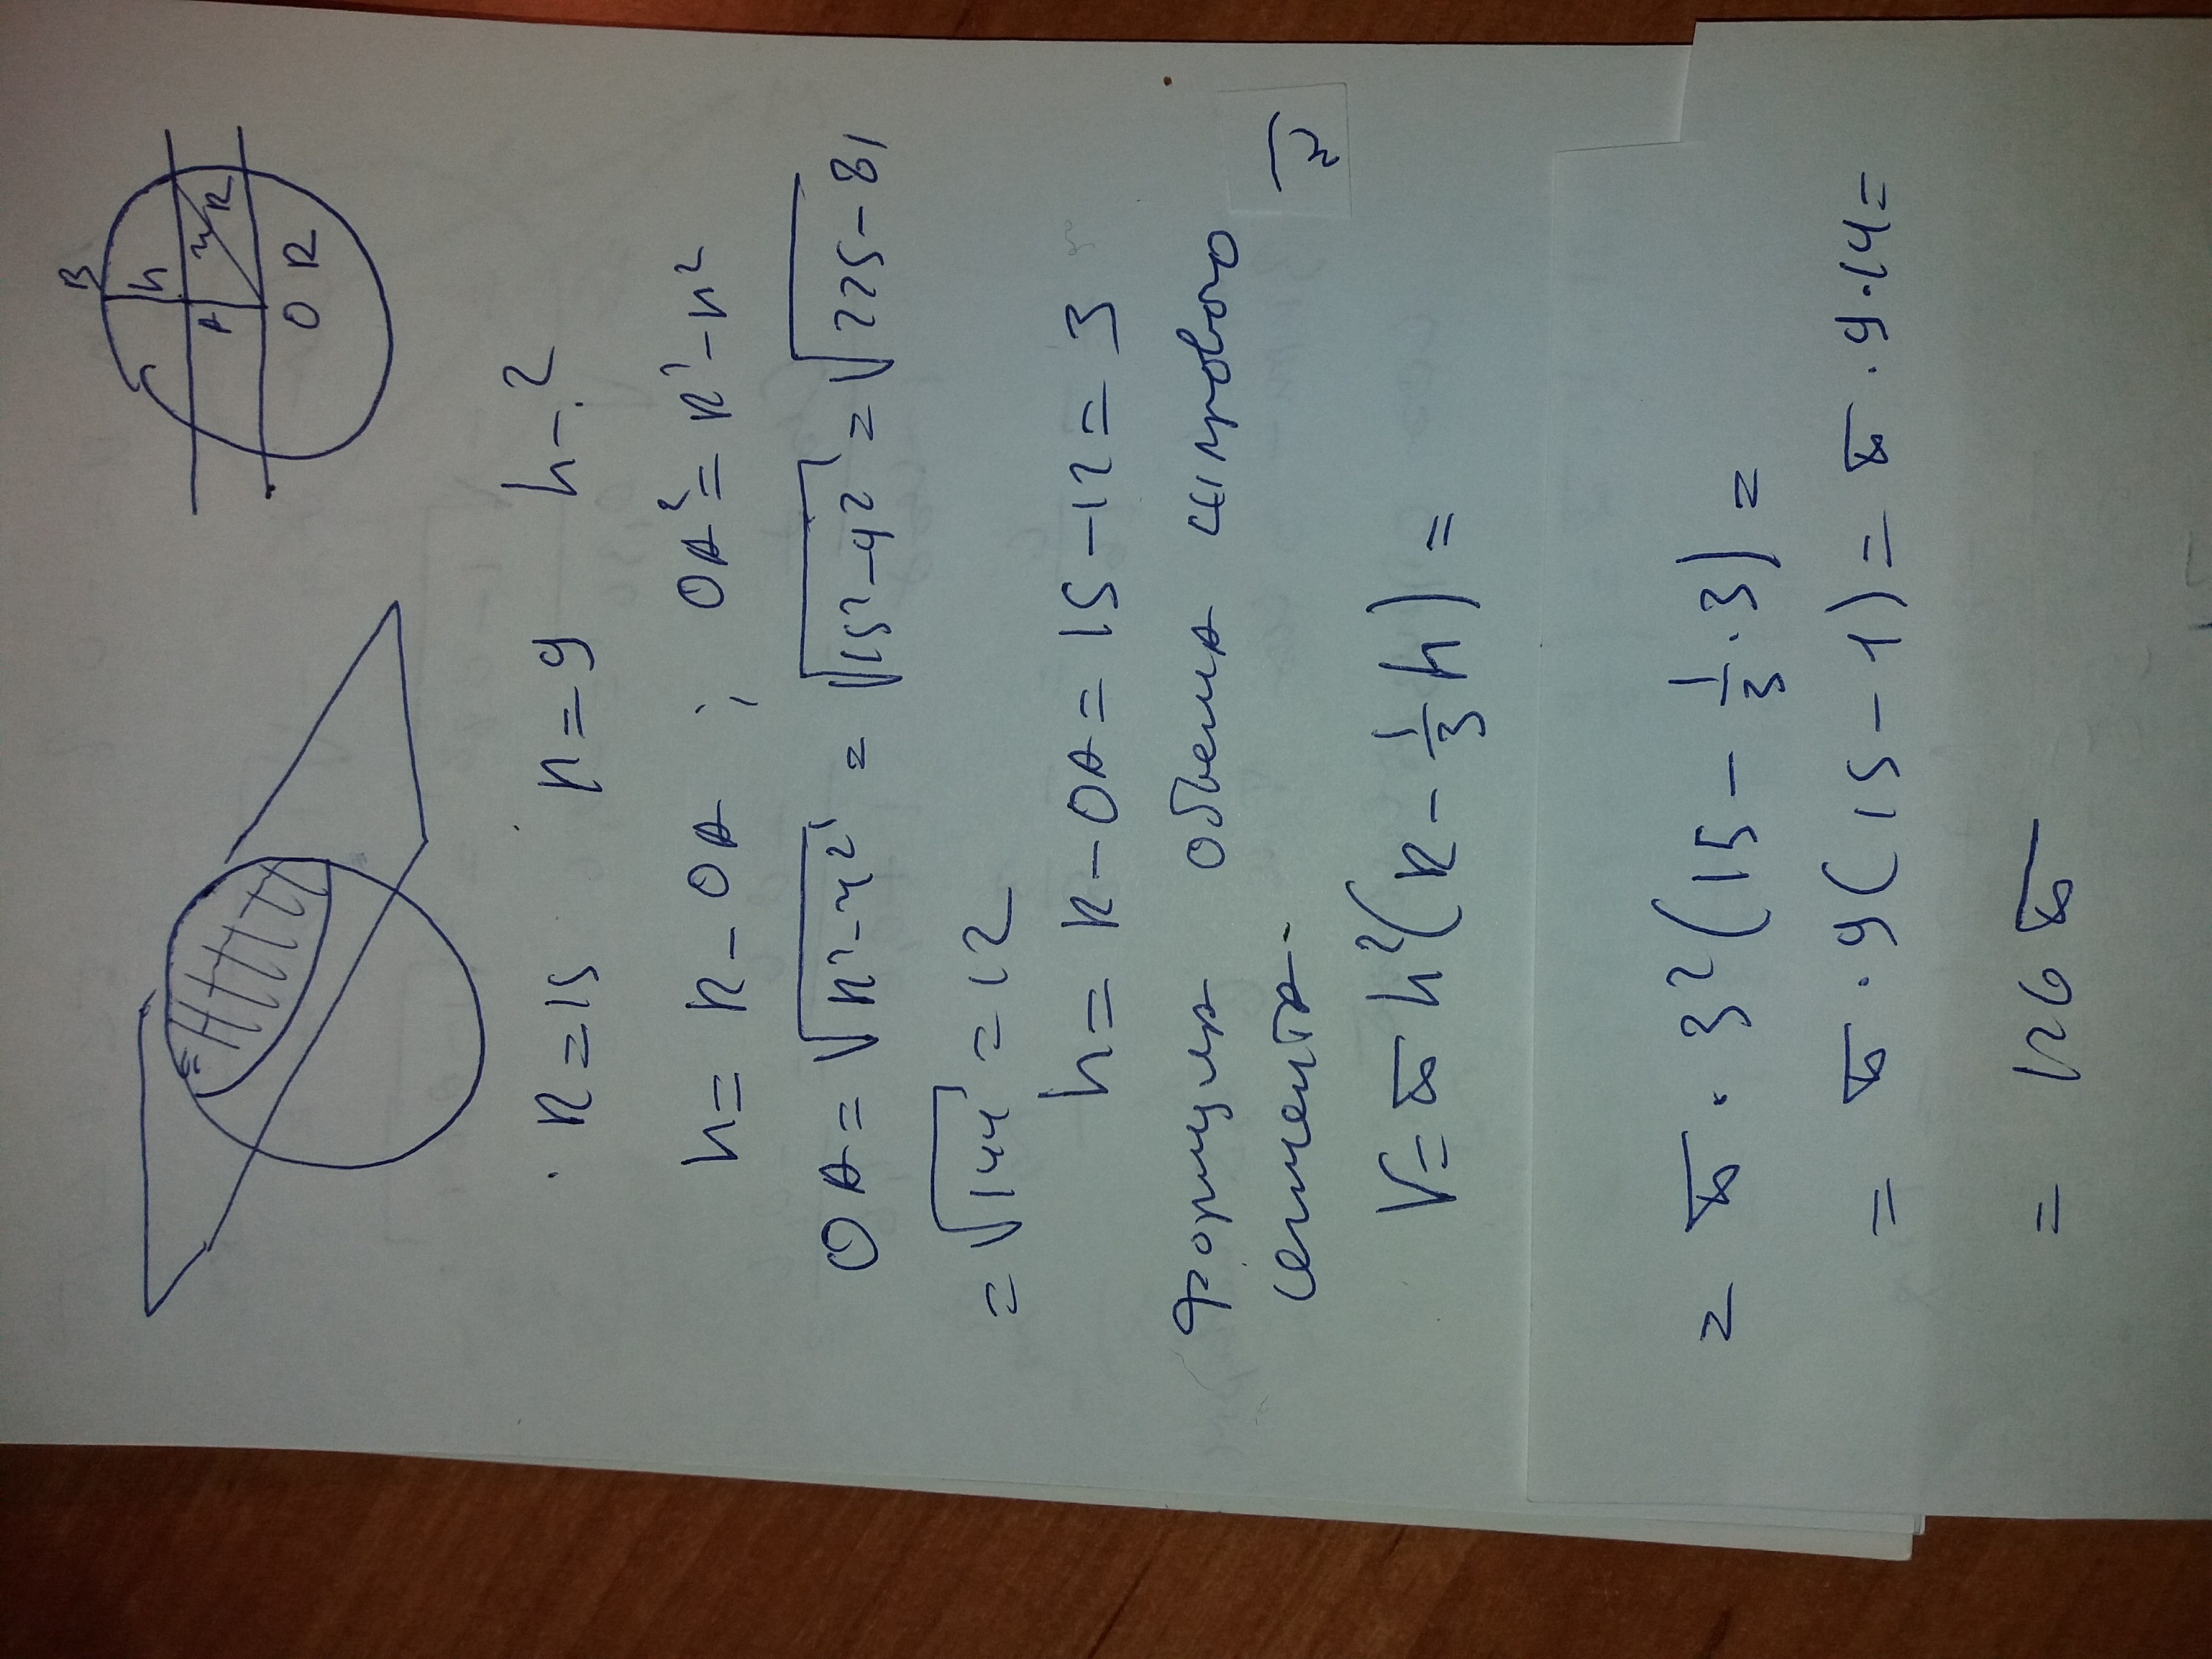 B
h
A
r
R
O R
R = 15 r = 9 h - ?
h = R - OA ; OA² = R² - r²
OA = √R² - r² = √15² - 9² = √225 - 81
= √144 = 12
h = R - OA = 15 - 12 = 3
Формула объема шарового
сегмента -
V = π h² (R - 1/3 h) =
= π · 3² (15 - 1/3 · 3) =
= π · 9 (15 - 1) = π · 9 · 14 =
= 126 π